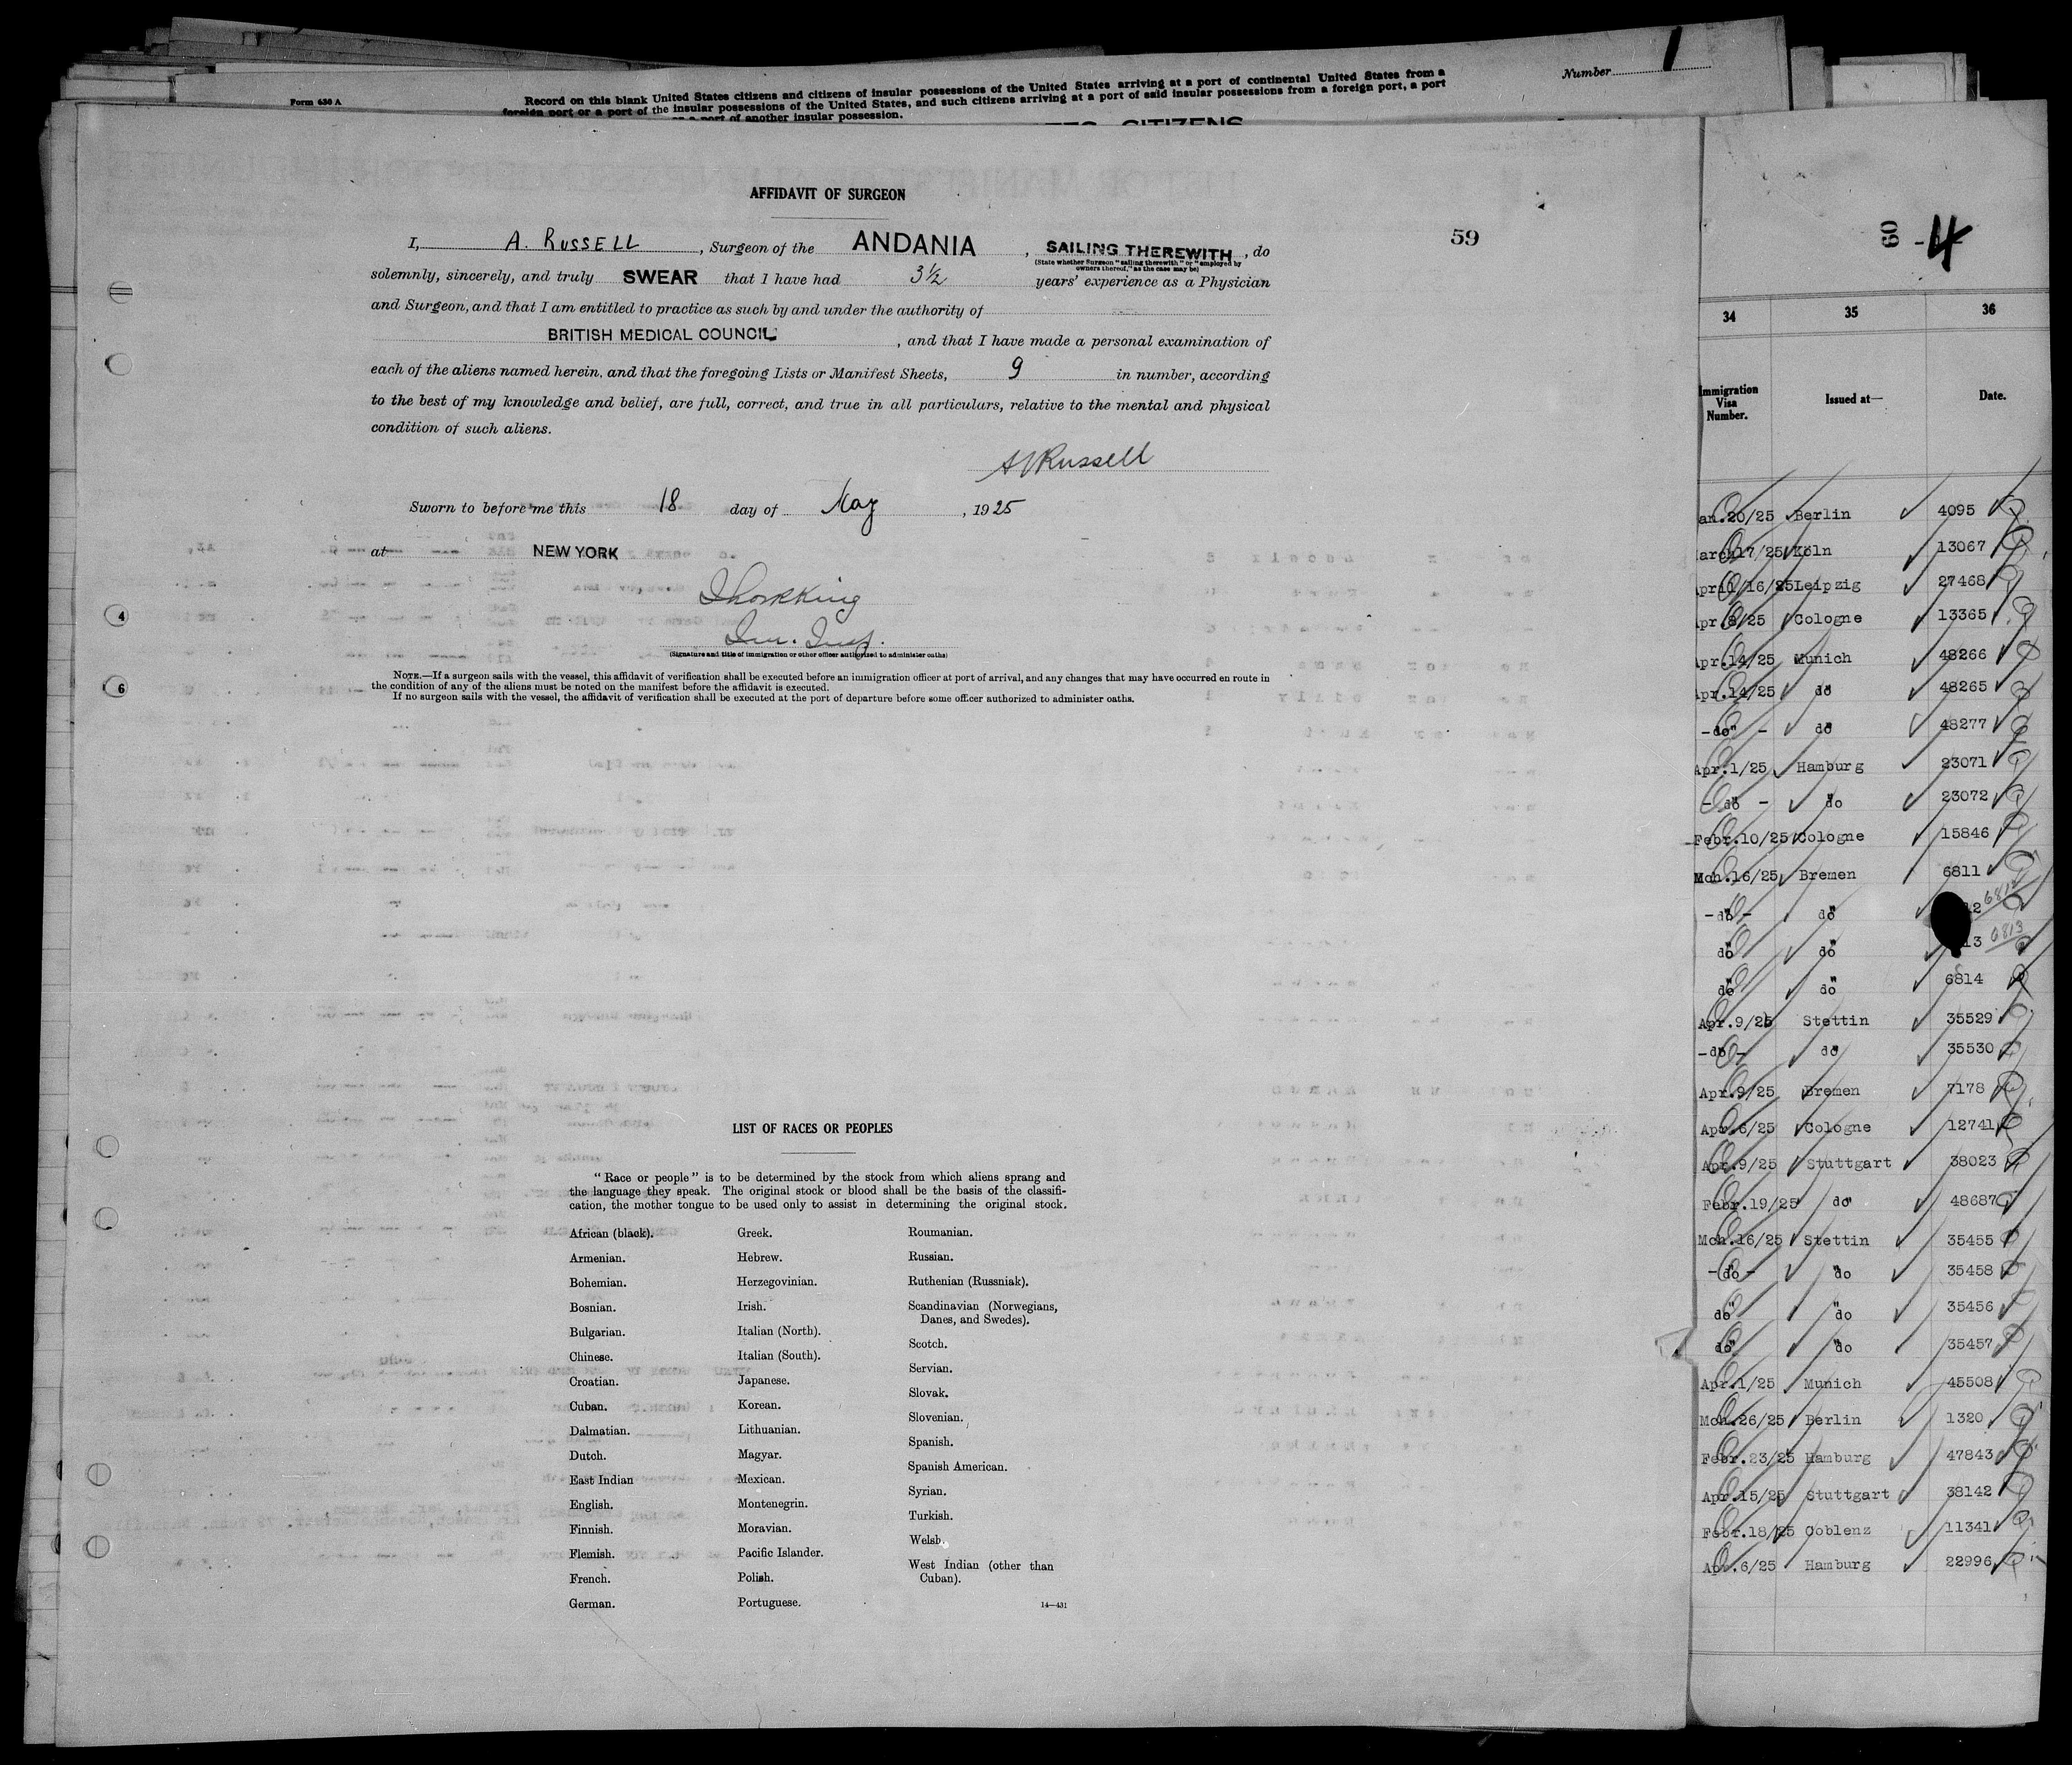 Form 630 A
Record on this blank United States citizens and citizens of insular possessions of the United States arriving at a port of continental United States from a
foreign port or a port of the insular possessions of the United States, and such citizens arriving at a port of said insular possessions from a foreign port, a port
port of another insular possession.
CITIZENS
Number 1
AFFIDAVIT OF SURGEON
59
I, A. RUSSELL, Surgeon of the ANDANIA, SAILING THEREWITH, do
(State whether Surgeon "sailing therewith" or "employed by
owners thereof," as the case may be)
solemnly, sincerely, and truly SWEAR that I have had 3½ years' experience as a Physician
and Surgeon, and that I am entitled to practice as such by and under the authority of
BRITISH MEDICAL COUNCIL, and that I have made a personal examination of
each of the aliens named herein, and that the foregoing Lists or Manifest Sheets, 9 in number, according
to the best of my knowledge and belief, are full, correct, and true in all particulars, relative to the mental and physical
condition of such aliens.
A Russell
Sworn to before me this 18 day of May, 1925
at NEW YORK
Imm. Insp.
(Signature and title of immigration or other officer authorized to administer oaths)
NOTE.—If a surgeon sails with the vessel, this affidavit of verification shall be executed before an immigration officer at port of arrival, and any changes that may have occurred en route in
the condition of any of the aliens must be noted on the manifest before the affidavit is executed.
If no surgeon sails with the vessel, the affidavit of verification shall be executed at the port of departure before some officer authorized to administer oaths.
4
6
LIST OF RACES OR PEOPLES
"Race or people" is to be determined by the stock from which aliens sprang and
the language they speak. The original stock or blood shall be the basis of the classifi-
cation, the mother tongue to be used only to assist in determining the original stock.
African (black).
Armenian.
Bohemian.
Bosnian.
Bulgarian.
Chinese.
Croatian.
Cuban.
Dalmatian.
Dutch.
East Indian
English.
Finnish.
Flemish.
French.
German.
Greek.
Hebrew.
Herzegovinian.
Irish.
Italian (North).
Italian (South).
Japanese.
Korean.
Lithuanian.
Magyar.
Mexican.
Montenegrin.
Moravian.
Pacific Islander.
Polish.
Portuguese.
Roumanian.
Russian.
Ruthenian (Russniak).
Scandinavian (Norwegians,
Danes, and Swedes).
Scotch.
Servian.
Slovak.
Slovenian.
Spanish.
Spanish American.
Syrian.
Turkish.
Welsh.
West Indian (other than
Cuban).
14—431
60 - 4
34 35 36
Immigration
Visa
Number.
Issued at—
Date.
an.20/25 Berlin 4095
arch17/25 Köln 13067
April/16/25 Leipzig 27468
Apr.8/25 Cologne 13365
Apr.14/25 Munich 48266
Apr.14/25 do" 48265
-do" - do" 48277
Apr.1/25 Hamburg 23071
- do" - "do 23072
Febr.10/25 Cologne 15846
Mch.16/25 Bremen 6811
-do"- do" 12 6812
do" do" 13 6813
do" do" 6814
Apr.9/25 Stettin 35529
-do"- do" 35530
Apr.9/25 Bremen 7178
Apr.6/25 Cologne 12741
Apr.9/25 Stuttgart 38023
Febr.19/25 do" 48687
Mch.16/25 Stettin 35455
- do - "do 35458
do" "do 35456
do" "do 35457
Apr.1/25 Munich 45508
Mch.26/25 Berlin 1320
Febr.23/25 Hamburg 47843
Apr.15/25 Stuttgart 38142
Febr.18/25 Coblenz 11341
Apr.6/25 Hamburg 22996